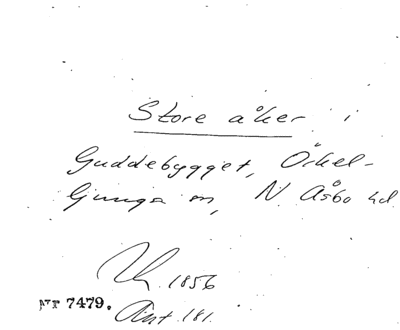 Store åker i
Guddebygget, Örkel-
ljunga sn, N. Åsbo hd
1856
Nr 7479. Ant. 181.